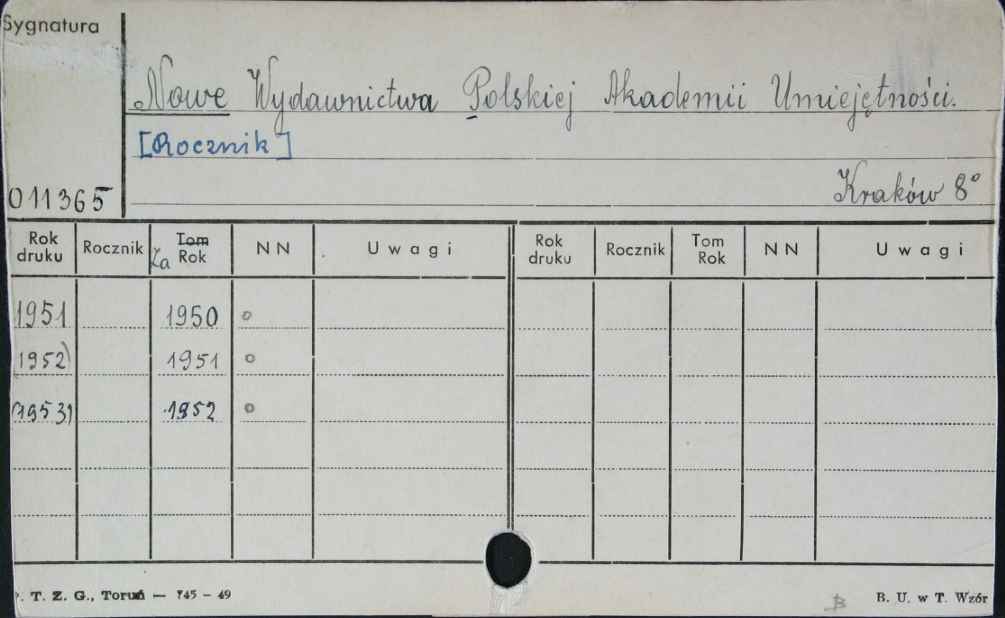 Sygnatura
Nowe Wydawnictwa Polskiej Akademii Umiejętności.
[Rocznik]
011365
Kraków 8°
Rok druku Rocznik Tom Za Rok NN Uwagi Rok druku Rocznik Tom Rok NN Uwagi
1951 1950 o
(1952) 1951 o
(1953) 1952 o
. T. Z. G., Toruń — 745 - 49 B B. U. w T. Wzór